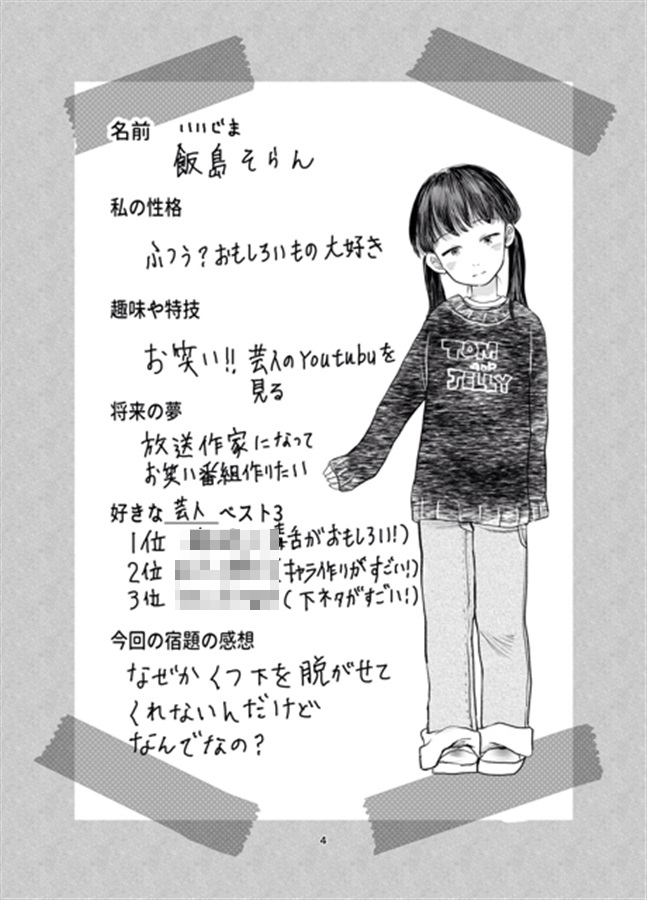 名前
いいじま
飯島そらん
私の性格
ふつう?おもしろいもの大好き
趣味や特技
お笑い!!芸人のYoutubuを
見る
将来の夢
放送作家になって
お笑い番組作りたい
好きな芸人ベスト3
1位 毒舌がおもしろい!)
2位 (キャラ作りがすごい!)
3位 (下ネタがすごい!)
今回の宿題の感想
なぜかくつ下を脱がせて
くれないんだけど
なんでなの?
TOM
and
JELLY
4